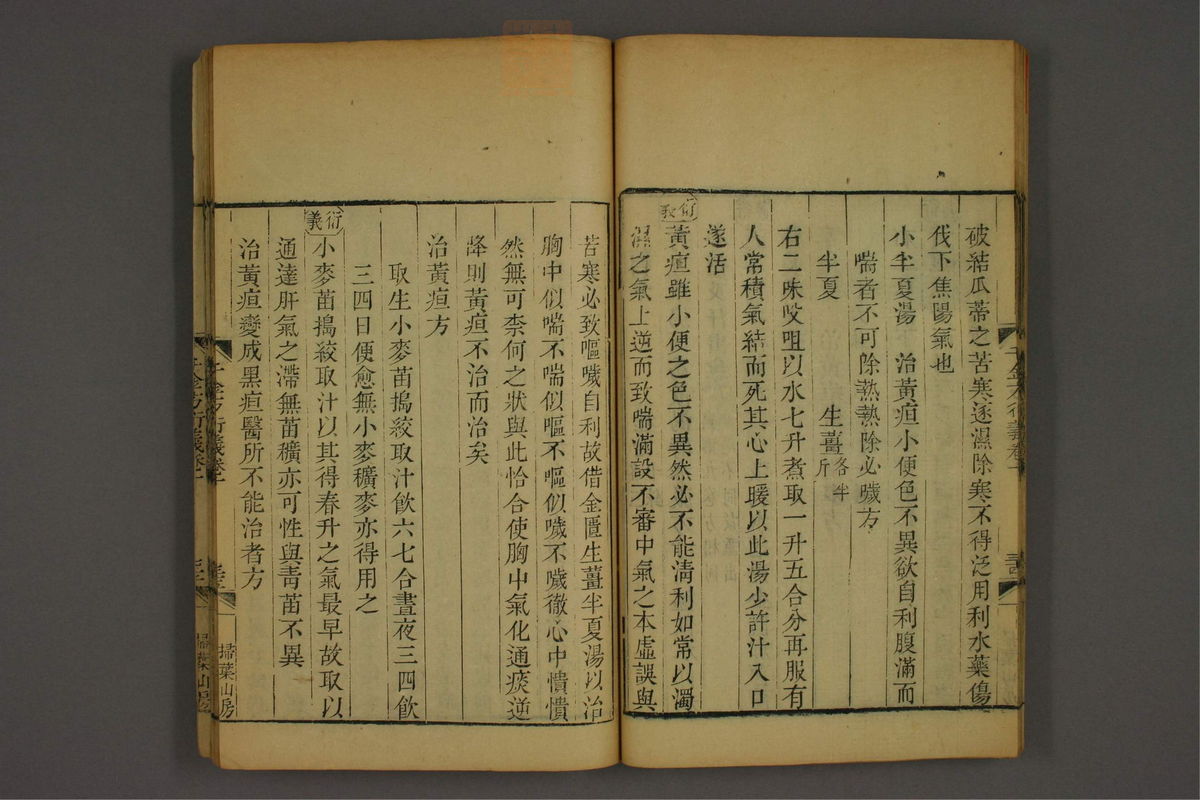 破結瓜蒂之苦寒逐濕除寒不得泛用利水藥傷
伐下焦陽氣也
小半夏湯 治黃疸小便色不異欲自利腹滿而
喘者不可除熱熱除必噦方
半夏 生薑各半斤
右二味㕮咀以水七升煮取一升五合分再服有
人常積氣結而死其心上暖以此湯少許汁入口
遂活
衍義
黃疸雖小便之色不異然必不能清利如常以濁
濕之氣上逆而致喘滿設不審中氣之本虛誤與
苦寒必致嘔噦自利故借金匱生薑半夏湯以治
胸中似喘不喘似嘔不嘔似噦不噦徹心中憒憒
然無可柰何之狀與此恰合使胸中氣化通痰逆
降則黃疸不治而治矣
治黃疸方
取生小麥苗搗絞取汁飲六七合晝夜三四飲
三四日便愈無小麥穬麥亦得用之
衍義
小麥苗搗絞取汁以其得春升之氣最早故取以
通達肝氣之滯無苗穬亦可性與靑苗不異
治黃疸變成黑疸醫所不能治者方
千金方衍義卷十
掃葉山房